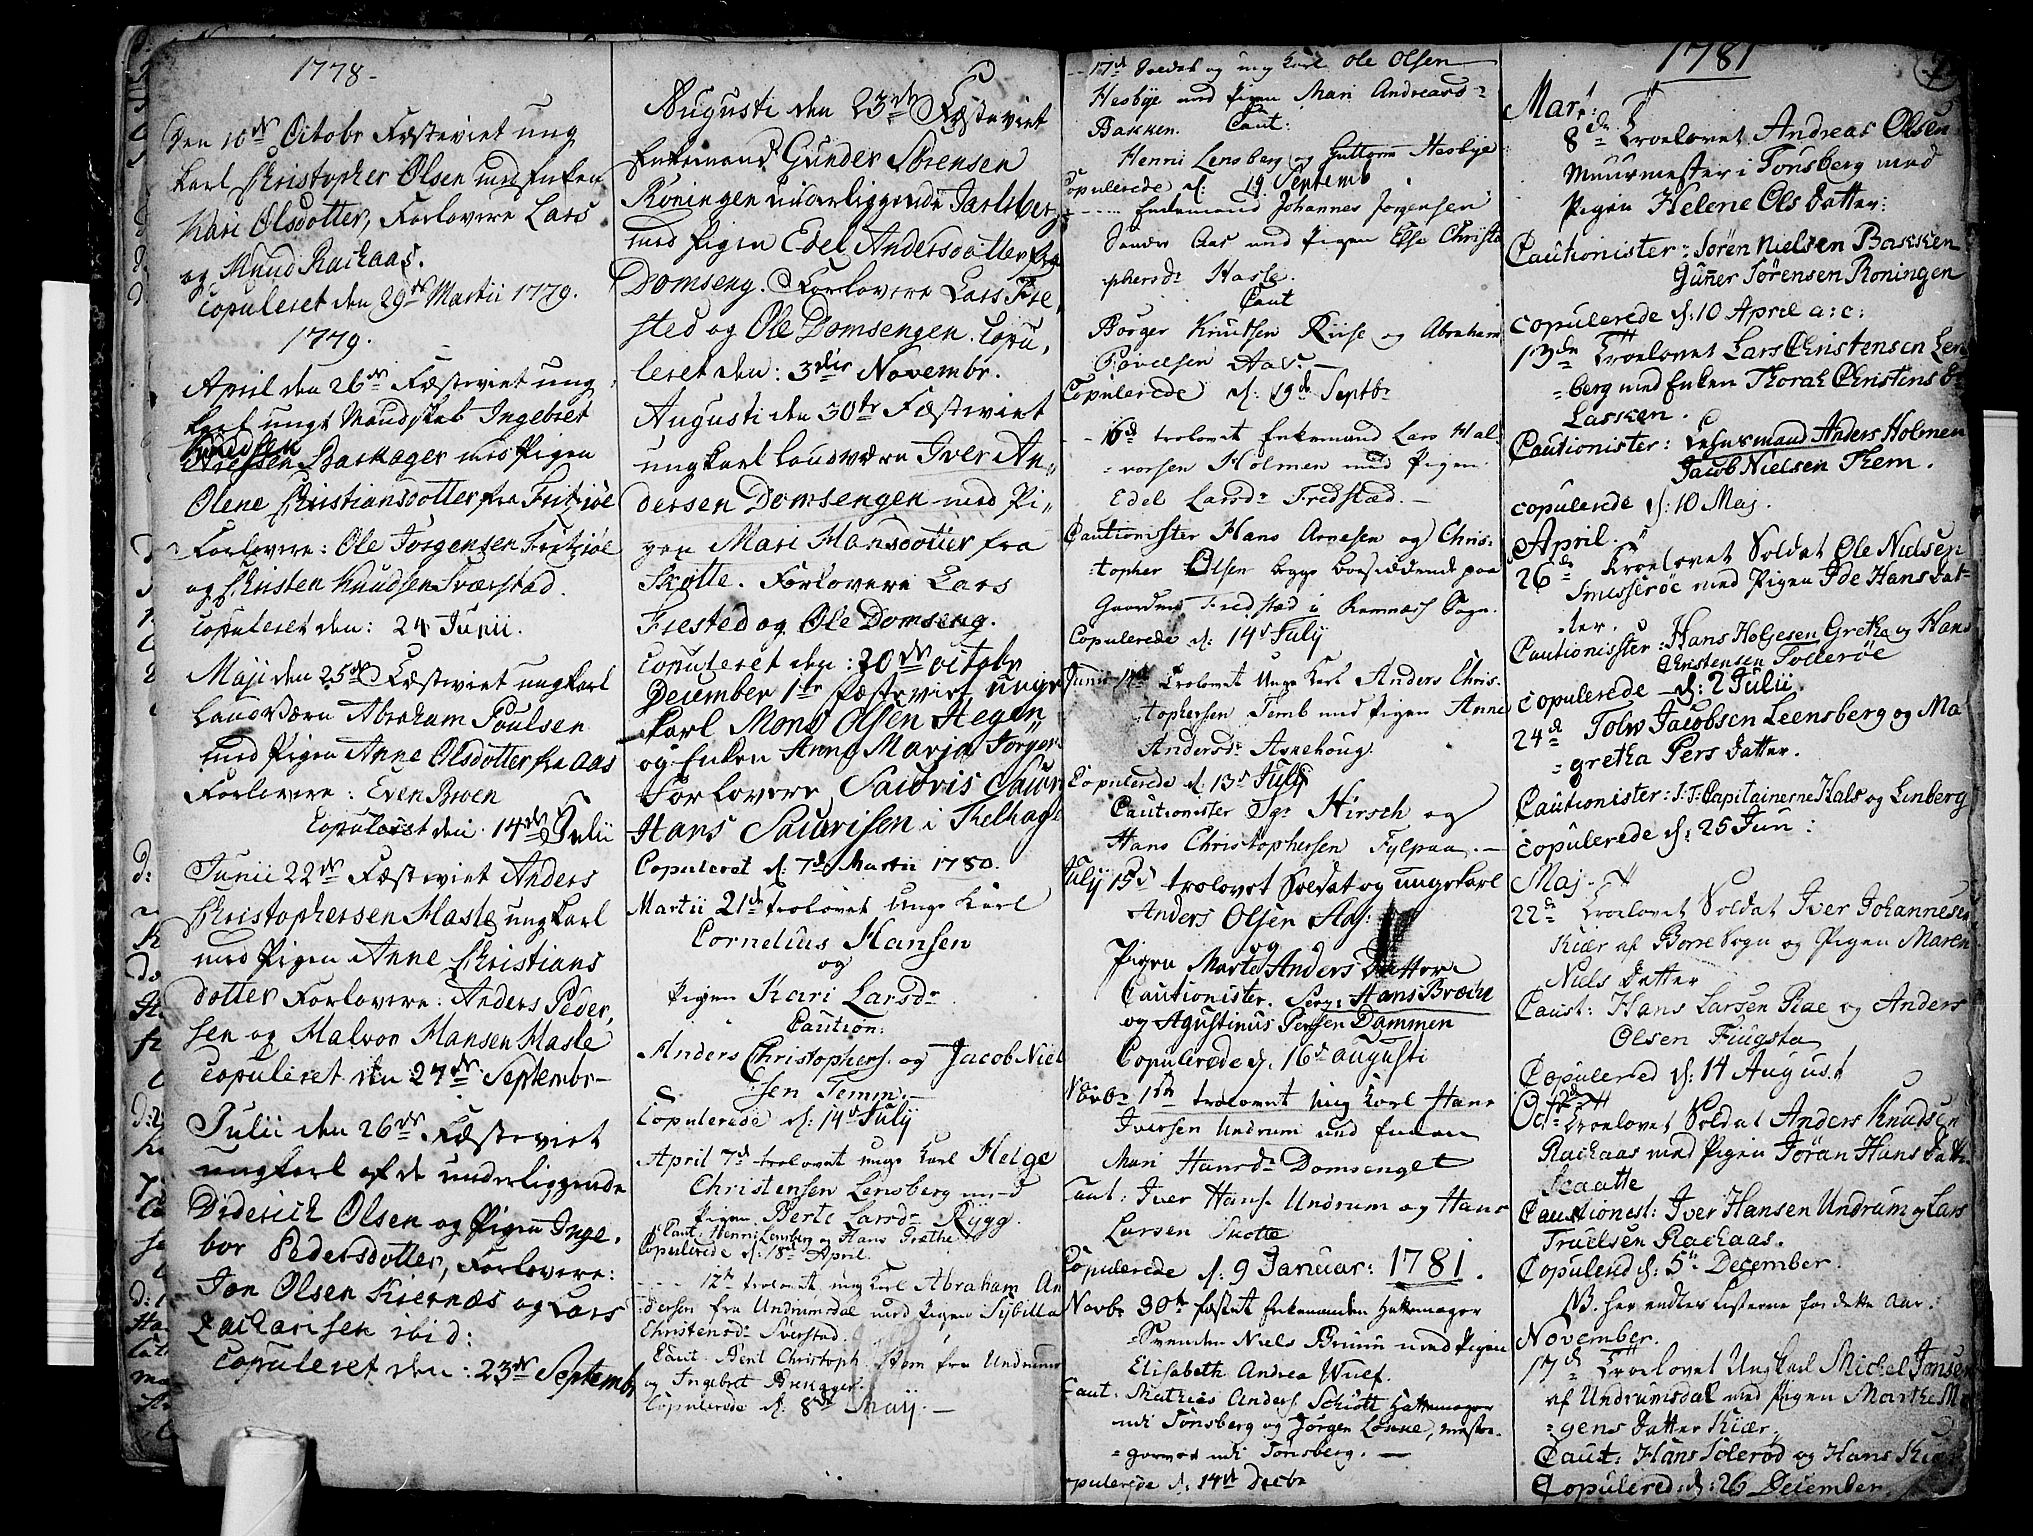 1778.
Den 10de Octobr Fæsteviet ung
karl Christopher Olsen med Enken
Kari Olsdotter, Forlovere Lars
og Knud Rachaas.
Copuleret den 29de Martii 1779.
1779.
April den 26de Fæsteviet ung
karl ungt Mandskab Ingebret
Knudsen
Barkager med Pigen
Olene Christiansdotter fra Fritzøe
Forlovere: Ole Jørgensen Fritzøe
og Christen Knudsen Sværstad.
copuleret den: 24 Junii.
Maji den 25de Fæsteviet ungkarl
Landværn Abraham Poulsen
med Pigen Anne Olsdotter fra Aas
Forlovere: Even Broen
Copuleret den. 14de Julii
Junii 22de Fæsteviet Anders
Christophersen Hasle ungkarl
med Pigen Anne Christians
dotter Forlovere: Anders Peder,
sen og Halvor Hansen Hasle
Copuleret den 27de Septembr
Julii den 26de Fæsteviet
ungkarl af de underliggende
Diderich Olsen og Pigen Inge,
bor Pedersdotter, Forlovere:
Jon Olsen Kiernæs og Lars
Zachariasen ibid:
Copuleret den: 23de Septembr
Augusti den 23de Fæsteviet
Enkemand Gunder Sørensen
Roningen underliggende Jarlsberg
med Pigen Edel Andersdotter fra
Domseng. Forlovere Lars Fre,
sted og Ole Domsengen. Copu,
leret den: 3die Novembr.
Augusti den 30te Fæsteviet
ungkarl Landværn Iver An,,
dersen Domsengen med Pi,,
gen Mari Hansdotter fra
Skotte. Forlovere Lars
Frested og Ole Domseng.
Copuleret den: 30de octobr
December 1te fæsteviet unge
karl Mons Olsen Hegen
og Enken Anne Marja Jörgens
Forlovere Saavis
Hans Saurisen i Kelhag
Copuleret d: 7de Martii 1780.
Martii 21de trolovet Unge Karl
Cornelius Hansen
og
Pigen Kari Larsdr
Caution:
Anders Christophers. og Jacob Niel
sen Temm.
Copulerede d: 14de July
April 7de trolovet unge Karl Helge
Christensen Lensberg med
Pigen Berte Larsdr Rygg.
Caut: Henni Lensberg og Hans Træthe
Copulerede d: 18de April.
12te trolovet ung Karl Abraham An
dersen fra Undrumsdal med Pigen Sybilla
Christensdr Sverstad.
Caut. Bent Christoph. Stom fra Undrum
og Ingebret Brekager.
Copulerede d: 8de Maij.
17de Soldat og ung karl Ole Olsen
Hesbye med Pigen Mari Andreasd=
Bakken. Caut:
Henni Lensberg og Guttorm Hesbye
Copulerede d: 19 Septemb
Enkemand Johannes Jörgensen
Sander Aas med Pigen Else Christo
phersdr Hasle.
Caut
Börger Knutsen Riise og Abraham
Povelsen Aas.
Copulerede d: 19de Septbr
6de trolovet Enkemand Lars Hal=
=vorsen Holmen med Pigen
Edel Larsdr Fredstad.
Cautionister Hans Arvesen og Chris=
=topher Olsen begge boesiddende paa
Gaarden Fredstad i Ramnæss Sogn.
Copulerede d: 14de July
Junii 17de Trolovet Unge Karl Anders Chris=
tophersen Temb med Pigen Anne
Andersdr Asnehoug.
Copulerede d. 13de July
Cautionister Sgr Hirsch og
Hans Christophersen Fylpaa.
July 15de trolovet Soldat og ungekarl
Anders Olsen Aas:
og
Pigen Marte Anders Datter
Cautionister. Serg: Hans Brochs
og Agustinus Persen Dammen
Copulerede d. 16de augusti
Novbr 1ste trolovet Ung Karl Hans
Iversen Undrum med Enken
Mari Hansdr Domsenget
Caut: Iver Hans. Undrum og Hans
Larsen Skotte
Copulerede d: 9 Januar: 1781.
Novbr 30te fæstet Enkemanden Hattemager
=Svenden Niels Bruun med Pigen
Elisabeth Andrea Wulf.
Caut: Mathias Anders. Schiött Hattemager
udi Tönsberg og Jörgen Lönne, mester
garver udi Tonsberg.
Copulerede d: 14de Decbr
1781
7
Mart:
8de Troelovet Andreas Olsen
Muurmester i Tonsberg med
Pigen Helene Ols Datter:
Cautionister: Sören Nielsen Bakken
Guner Sörensen Roningen
copulerede d: 10 April a: c:
13de Troelovet Lars Christensen Len
=berg med Enken Thorah Christens D
Lasken.
Cautionister: Lehnsmand Anders Holmen
Jacob Nielsen Them.
copulerede d: 10 Maj.
April.
26de Troelovet Soldat Ole Nielsen
Smisseröe med Pigen Ide Hans Dat=
=ter.
Cautionister: Hans Holgesen Gretka og Hans
Christensen Solleröe
copulerede d: 2 Julii,
24de Tolv Jacobsen Leensberg og Ma
=gretha Pers Datter.
Cautionister: S: T: Capitainerne Hals og Linberg
copulerede d: 25 Jun:
Maj
22de Troelovet Soldat Iver Johannesen
Kiær af Borre Sogn og Pigen Maren
Niels Datter
Caust: Hans Larsen Rae og Anders
Olsen Fiugsta
Copulered d: 14 August
Octr Troelovet Soldat Anders Knudsen
Rachaas med Pigen Jöran Hans Datt.
Scaatte
Cautionest: Iver Hansen Undrum og Lars
Truelsen Rachaas.
Copulered d: 5te December.
NB. her endtes Listerne for dette Aar.
November.
17de Troelovet Ungkarl Michel Jonsen
af Undrumsdal med Pigen Marthe Mo
=gens Datter Kiær.
Caut: Hans Solerød og Hans Kiær
Copulered d: 26 December.